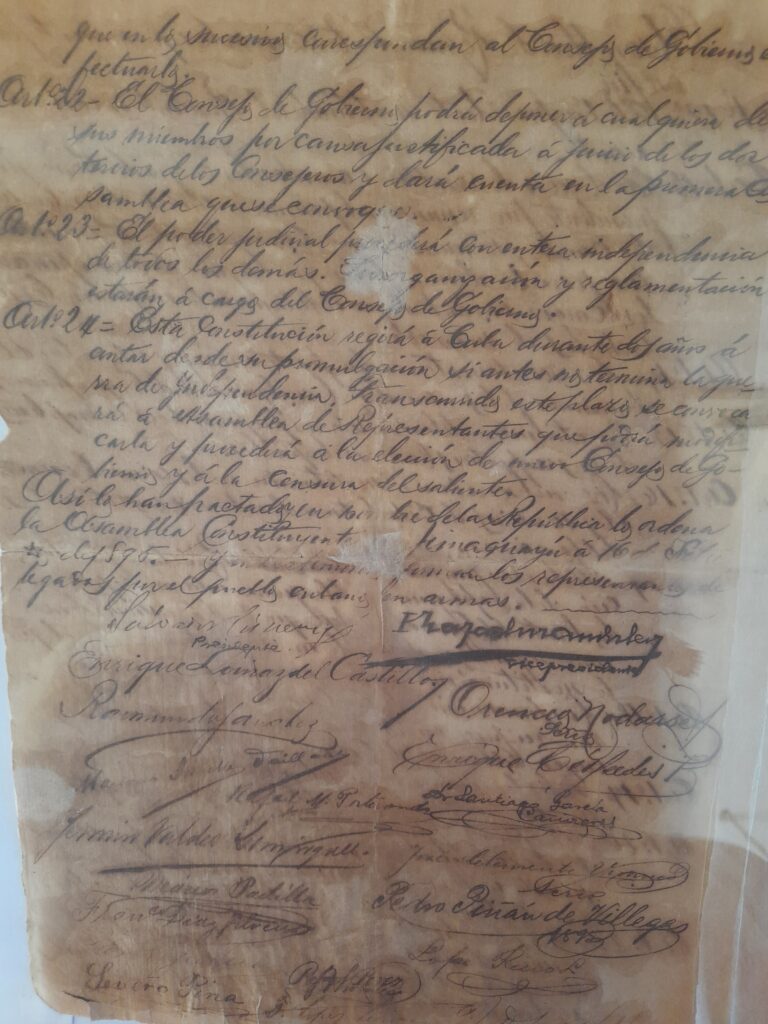 que en lo sucesivo correspondan al Consejo de Gobierno e
fectuarlo.
Art.º 22 - El Consejo de Gobierno podrá deponer á cualquiera de
sus miembros por causa justificada á juicio de los dos
tercios de los Consejeros y dará cuenta en la primera A
samblea que se convoque.
Art.º 23 = El poder judicial procederá con entera independencia
de todos los demás. Su organización y reglamentación
estarán á cargo del Consejo de Gobierno.
Art.º 24 = Esta Constitución regirá á Cuba durante dos años á
contar desde su promulgación si antes no termina la gue-
rra de Independencia. Transcurrido este plazo se convoca
rá á Asamblea de Representantes que podrá modifi-
carla y procederá á la elección de nuevo Consejo de Go-
bierno y á la censura del saliente.
Así lo han pactado y en nombre de la República lo ordena
la Asamblea Constituyente Jimaguayú á 16 de
de 1895. — y los representantes de
legados por el pueblo cubano en armas.
Salvador Cisneros
Presidente
Rafael Manduley
vicepresidente
Enrique Loinaz del Castillo
Orencio Nodarse
Srio
Raimundo Sánchez
Enrique Céspedes
Rafael M. Portuondo
Dr Santiago García
Cañizares
Fermín Valdés Domínguez
José Clemente Vivanco
Srio
Marcos Padilla
Pedro Piñán de Villegas
1895
Franco Díaz Silveira
Lope Recio L.
Severo Pina